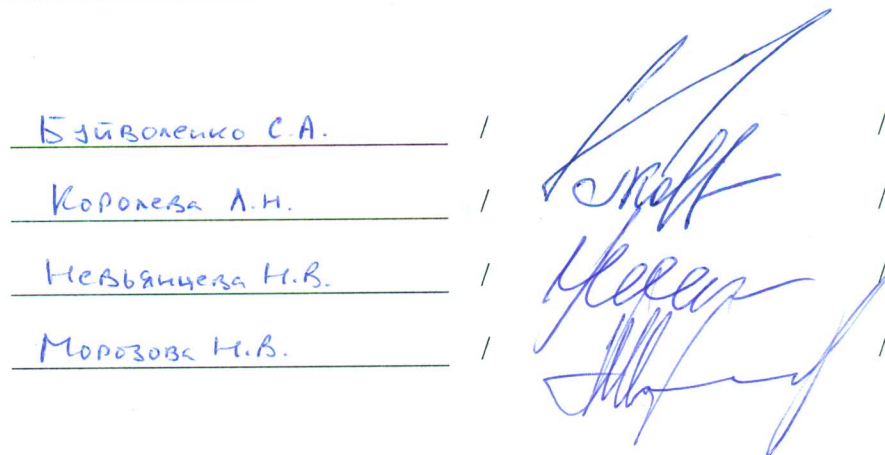 Буйволенко С.А. / /
Королева Л.Н. / /
Невьянцева Н.В. / /
Морозова Н.В. / /